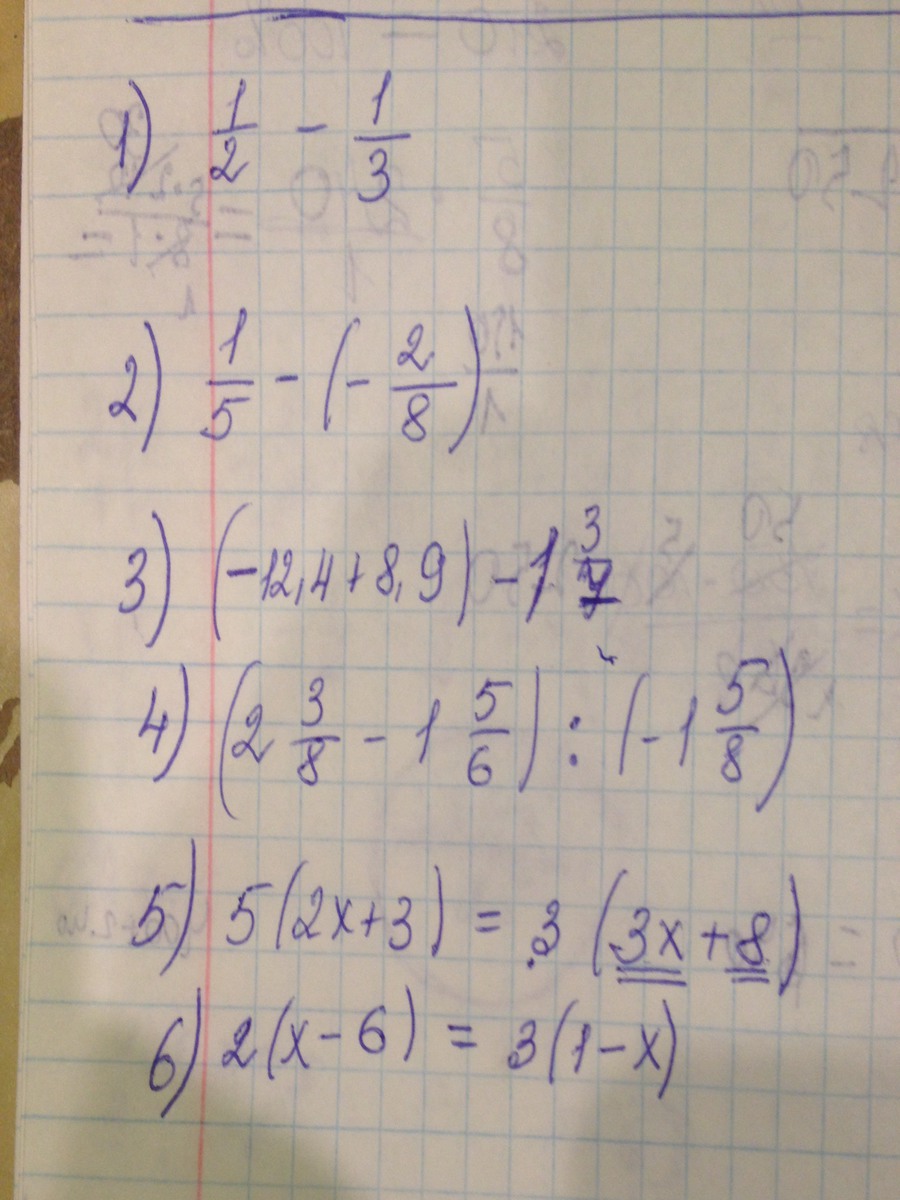 1) 1/2 - 1/3
2) 1/5 - (- 2/8)
3) (-12,4+8,9) - 1 3/7
4) (2 3/8 - 1 5/6) : (-1 5/8)
5) 5(2x+3) = 3 (3x+8)
6) 2(x-6) = 3(1-x)